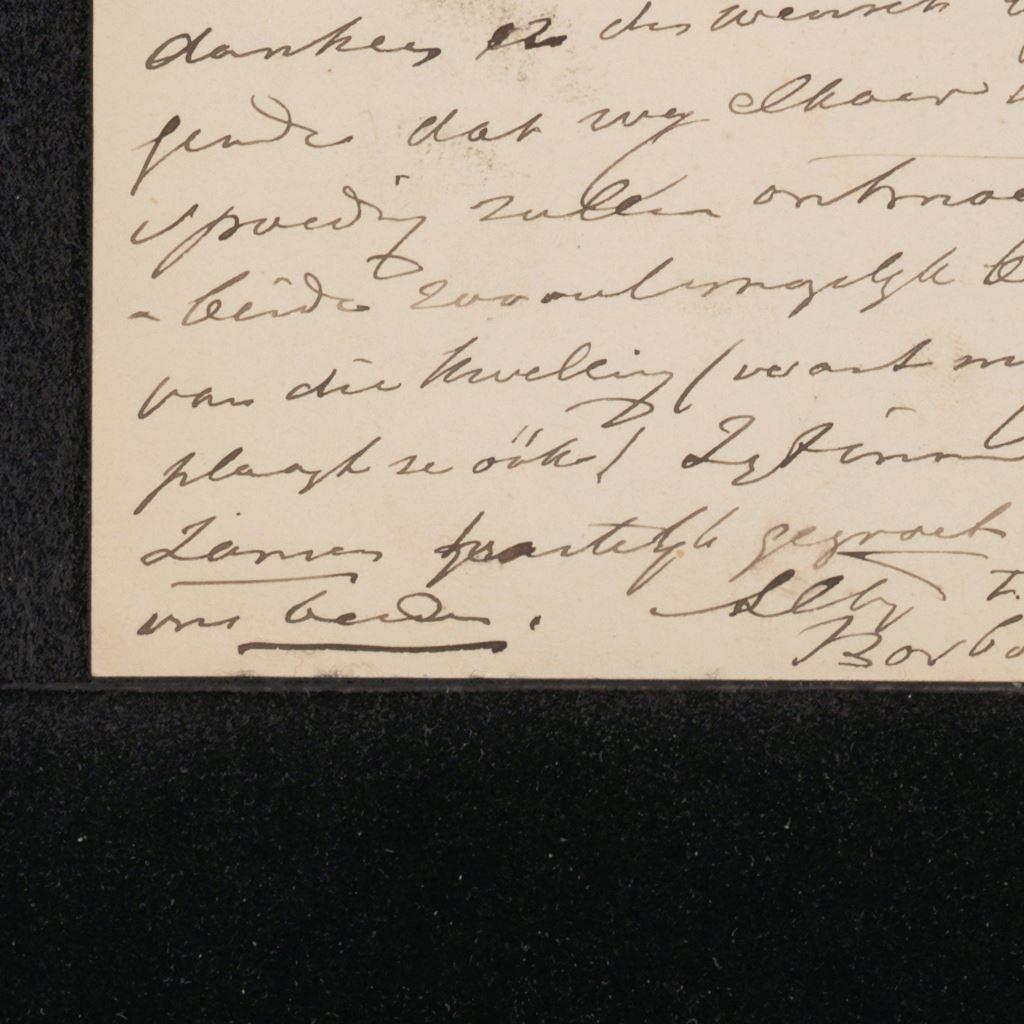 danken en des wensch
gende dat wy elkaer
spoedig zullen ontmoe
- beide zooveel mogelyk
van die kwelling (want m
plaagt ze óók)
Zamen hartelyk gegroet
ons beiden.
Bosbo